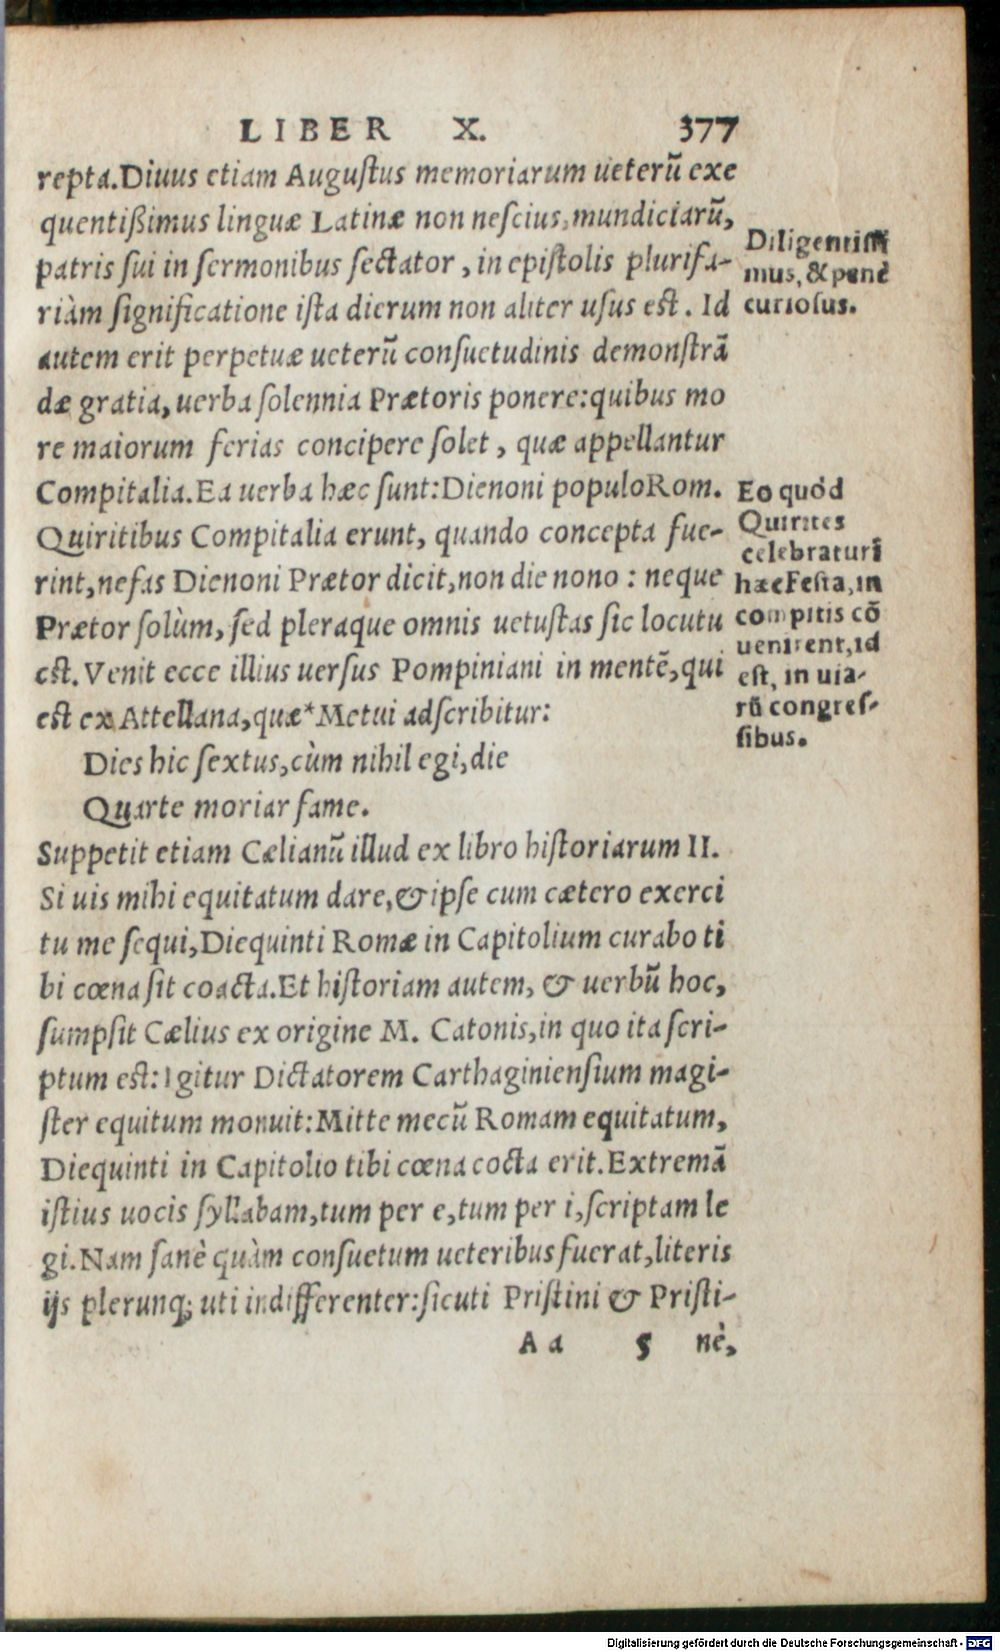 LIBER X. 377
repta. Diuus etiam Augustus memoriarum ueterū exe
quentißimus linguæ Latinæ non nescius, mundiciarū,
patris sui in sermonibus sectator, in epistolis plurifa-
riàm significatione ista dierum non aliter usus est. Id
autem erit perpetuæ ueterū consuetudinis demonstrā
dæ gratia, uerba solennia Prætoris ponere: quibus mo
re maiorum ferias concipere solet, quæ appellantur
Compitalia. Ea uerba hæc sunt: Dienoni populo Rom.
Quiritibus Compitalia erunt, quando concepta fue-
rint, nefas Dienoni Prætor dicit, non die nono: neque
Prætor solùm, sed pleraque omnis uetustas sic locutu
est. Venit ecce illius uersus Pompiniani in mentē, qui
est ex Attellana, quæ *Metui adscribitur:
Dies hic sextus, cùm nihil egi, die
Quarte moriar fame.
Suppetit etiam Cælianū illud ex libro historiarum II.
Si uis mihi equitatum dare, & ipse cum cætero exerci
tu me sequi, Diequinti Romæ in Capitolium curabo ti
bi cœna sit coacta. Et historiam autem, & uerbū hoc,
sumpsit Cælius ex origine M. Catonis, in quo ita scri-
ptum est: Igitur Dictatorem Carthaginiensium magi-
ster equitum monuit: Mitte mecū Romam equitatum,
Diequinti in Capitolio tibi cœna cocta erit. Extremā
istius uocis syllabam, tum per e, tum per i, scriptam le
gi. Nam sanè quàm consuetum ueteribus fuerat, literis
ijs plerunq; uti indifferenter: sicuti Pristini & Pristi-
Aa 5 nè,
Diligentissi
mus, & penè
curiosus.
Eo quòd
Quirites
celebraturi
hæc Festa, in
compitis cō
uenirent, id
est, in uia-
rū congres-
sibus.
Digitalisierung gefördert durch die Deutsche Forschungsgemeinschaft - DFG